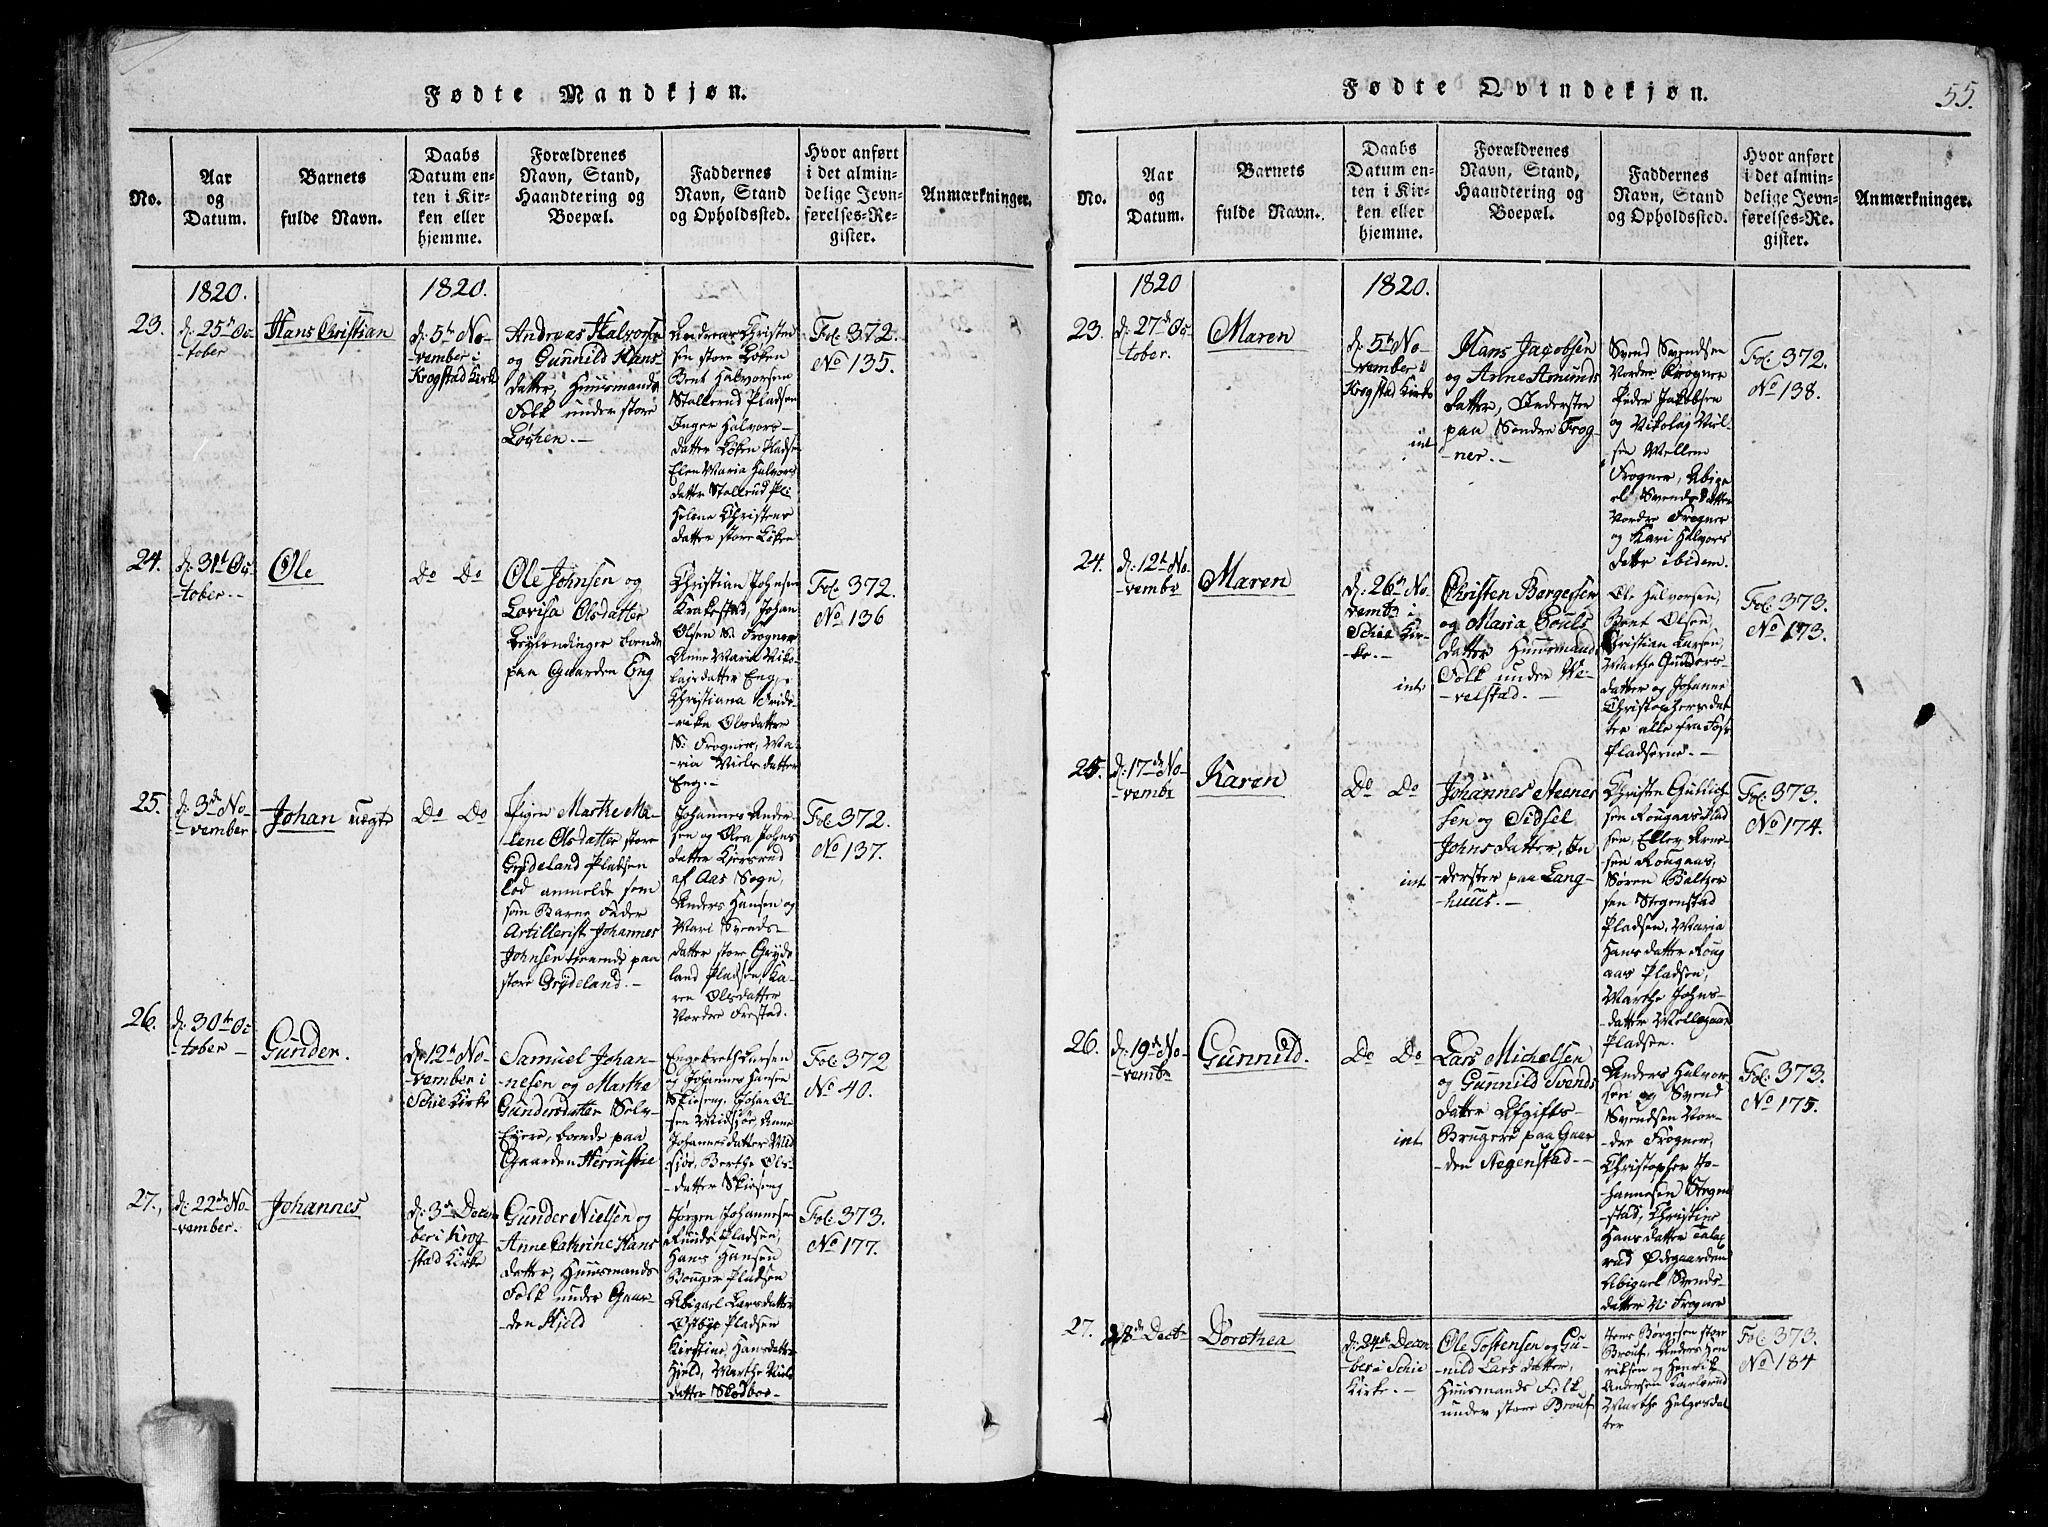 Fødte Mandkjøn.
No.
Aar
og
Datum.
Barnets
fulde Navn.
Daabs
Datum en-
ten i Kir-
ken eller
hjemme.
Forældrenes
Navn, Stand,
Haandtering og
Boepæl.
Faddernes
Navn, Stand
og Opholdssted.
Hvor anført
i det almin-
delige Jevn-
førelses-Re-
gister.
Anmærkninger.
1820.
1820.
23.
d: 25de Oc-
tober
Hans Christian
d: 5te No-
vember i
Krogstad Kirke
Andreas Halvorse
og Gunnild Hans
datter, Huusmands
Folk under store
Løchen.-
Andreas Christen
sen store Løken
Bent Halvorsen
Stallerud Pladsen
Inger Halvors-
datter Løken Pladse
Elen Maria Halvors
datter Stallerud Pl:
Helene Christens
datter store Løken
Fol: 372.
No 135.
24.
d: 31te Oc-
tober.-
Ole
Do Do
Ole Johnsen og
Lovisa Olsdatter
boende
paa Gaarden Eng
Christian Johnsen
Krakestad, Johan
Olsen S: Frogner
Anne Maria Niko-
lajsdatter Eng,
Christiana Fride-
rike Olsdatter
S: Frogner, Ma-
ria Nielsdatter
Eng.-
Fol: 372.
No 136
25.
d: 3de No-
vember
Johan uægte
Do Do
Pigen Marthe Ma-
lene Olsdatter store
Grydeland Pladsen
lod anmelde som
som Barne Fader
Artillerist Johannes
Johnsen tienende paa
store Grydeland.-
Johannes Ander
sen og Olea Johns
datter Kiersrud
af Aas Sogn,
Anders Hansen og
Mari Svends-
datter store Gryde
land Pladsen, Ka-
ren Olsdatter
Nordre Frestad.
Fol: 372.
No 137.
26.
d: 30te Oc-
tober-
Gunder.
d: 12te No-
vember i
Schie Kirke
Samuel Johan-
nesen og Marthe
Gundersdatter Selv-
Eyere, boende paa
Gaarden
Engebreth Larsen
og Johannes Hansen
Skieseng, Johan Ol-
sen Midsjøe, Anne
Johannesdatter Mid
siøe, Berthe Ols-
datter Skieseng
Fol: 372
No 40.
27.
d: 22de No-
vember.
Johannes
d: 3de Decem
ber i Krog
stad Kirke
Gunder Nielsen og
Anne Cathrine Hans
datter, Huusmands
Folk under Gaar-
den Hjeld
Jørgen Johannesen
Pladsen,
Hans Hansen
Pladsen
Abigael Larsdatter
Østbye Pladsen
Kirstine Hansdatter
Hjeld, Marthe Niels
datter Slødboe
Fol: 373.
No 177.
Fødte Qvindekjøn.
55.
No.
Aar
og
Datum.
Barnets
fulde Navn.
Daabs
Datum en-
ten i Kir-
ken eller
hjemme.
Forældrenes
Navn, Stand,
Haandtering og
Boepæl.
Faddernes
Navn, Stand
og Opholdssted.
Hvor anført
i det almin-
delige Jevn-
førelses-Re-
gister.
Anmærkninger.
1820
1820.
23.
d: 27de Oc-
tober.
Maren
d: 5te No-
vember i
Krogstad Kirke
int
Hans Jacobsen
og Anne Amunds
datter, Inderster
paa Søndre Frog-
ner.-
Svend Svendsen
Nordre Krogner
Peder Jakobsen
og Nikolaj Niel-
sen Mellem
Frogner, Abiga
el Svendsdatter
Nordre Frogner
og Kari Halvors
datter ibidem.
Fol: 372.
No 138.
24.
d: 12te No-
vembr
Maren
d: 26de No-
vembr i
Schie Kir-
ke.-
int
Christen Børgessen
og Maria Pouls
datter Huusmands
Folk under We-
velstad.-
Ole Halvorsen,
Bent Olsen,
Christian Larsen,
Marthe Gulders-
datter og Johanne
Christophersdat
ter alle fra
Pladserne.-
Fol: 373.
No 173.
25.
d: 17de No-
vembr
Karen
Do Do
int
Johannes Steenes
sen og Sidsel
Johnsdatter, In
derster paa Lang-
huus.-
Christen Gutlich
sen Rougaas Plad
sen, Eller Arne-
sen Rougaas,
Søren Baltzer
sen Stegenstad
Pladsen, Maria
Hansdatter Roug
aas Pladsen,
Marthe Johns-
datter Mellegaard
Pladsen.
Fol: 373.
No 174.
26.
d: 19de No-
vembr
Gunnild.
Do Do
int.
Lars Michelsen
og Gunnild Svends
datter Afgifts-
Brugere paa Gaar
den Stegenstad.-
Anders Halvor
sen og Svend
Svendsen Nor-
dre Frogner,
Christopher Jo-
hannesen Stegen
stad, Christine
Hansdatter
rud Ødegaarden
Abigael Svends-
datter N: Frogner
Fol: 373.
No 175.
27.
8de Decbr
Dorothea
d: 24de Decem
ber i Schie
Kirke.-
Ole Tostensen og Gu-
nild Lars datter,
Huusmands Folk
under store Brouf
Jens Børgesen store
Brouf, Anders Hen
riksen og Henrik
Andersen
Marthe Helgesdat
ter
Fol: 373.
No 184